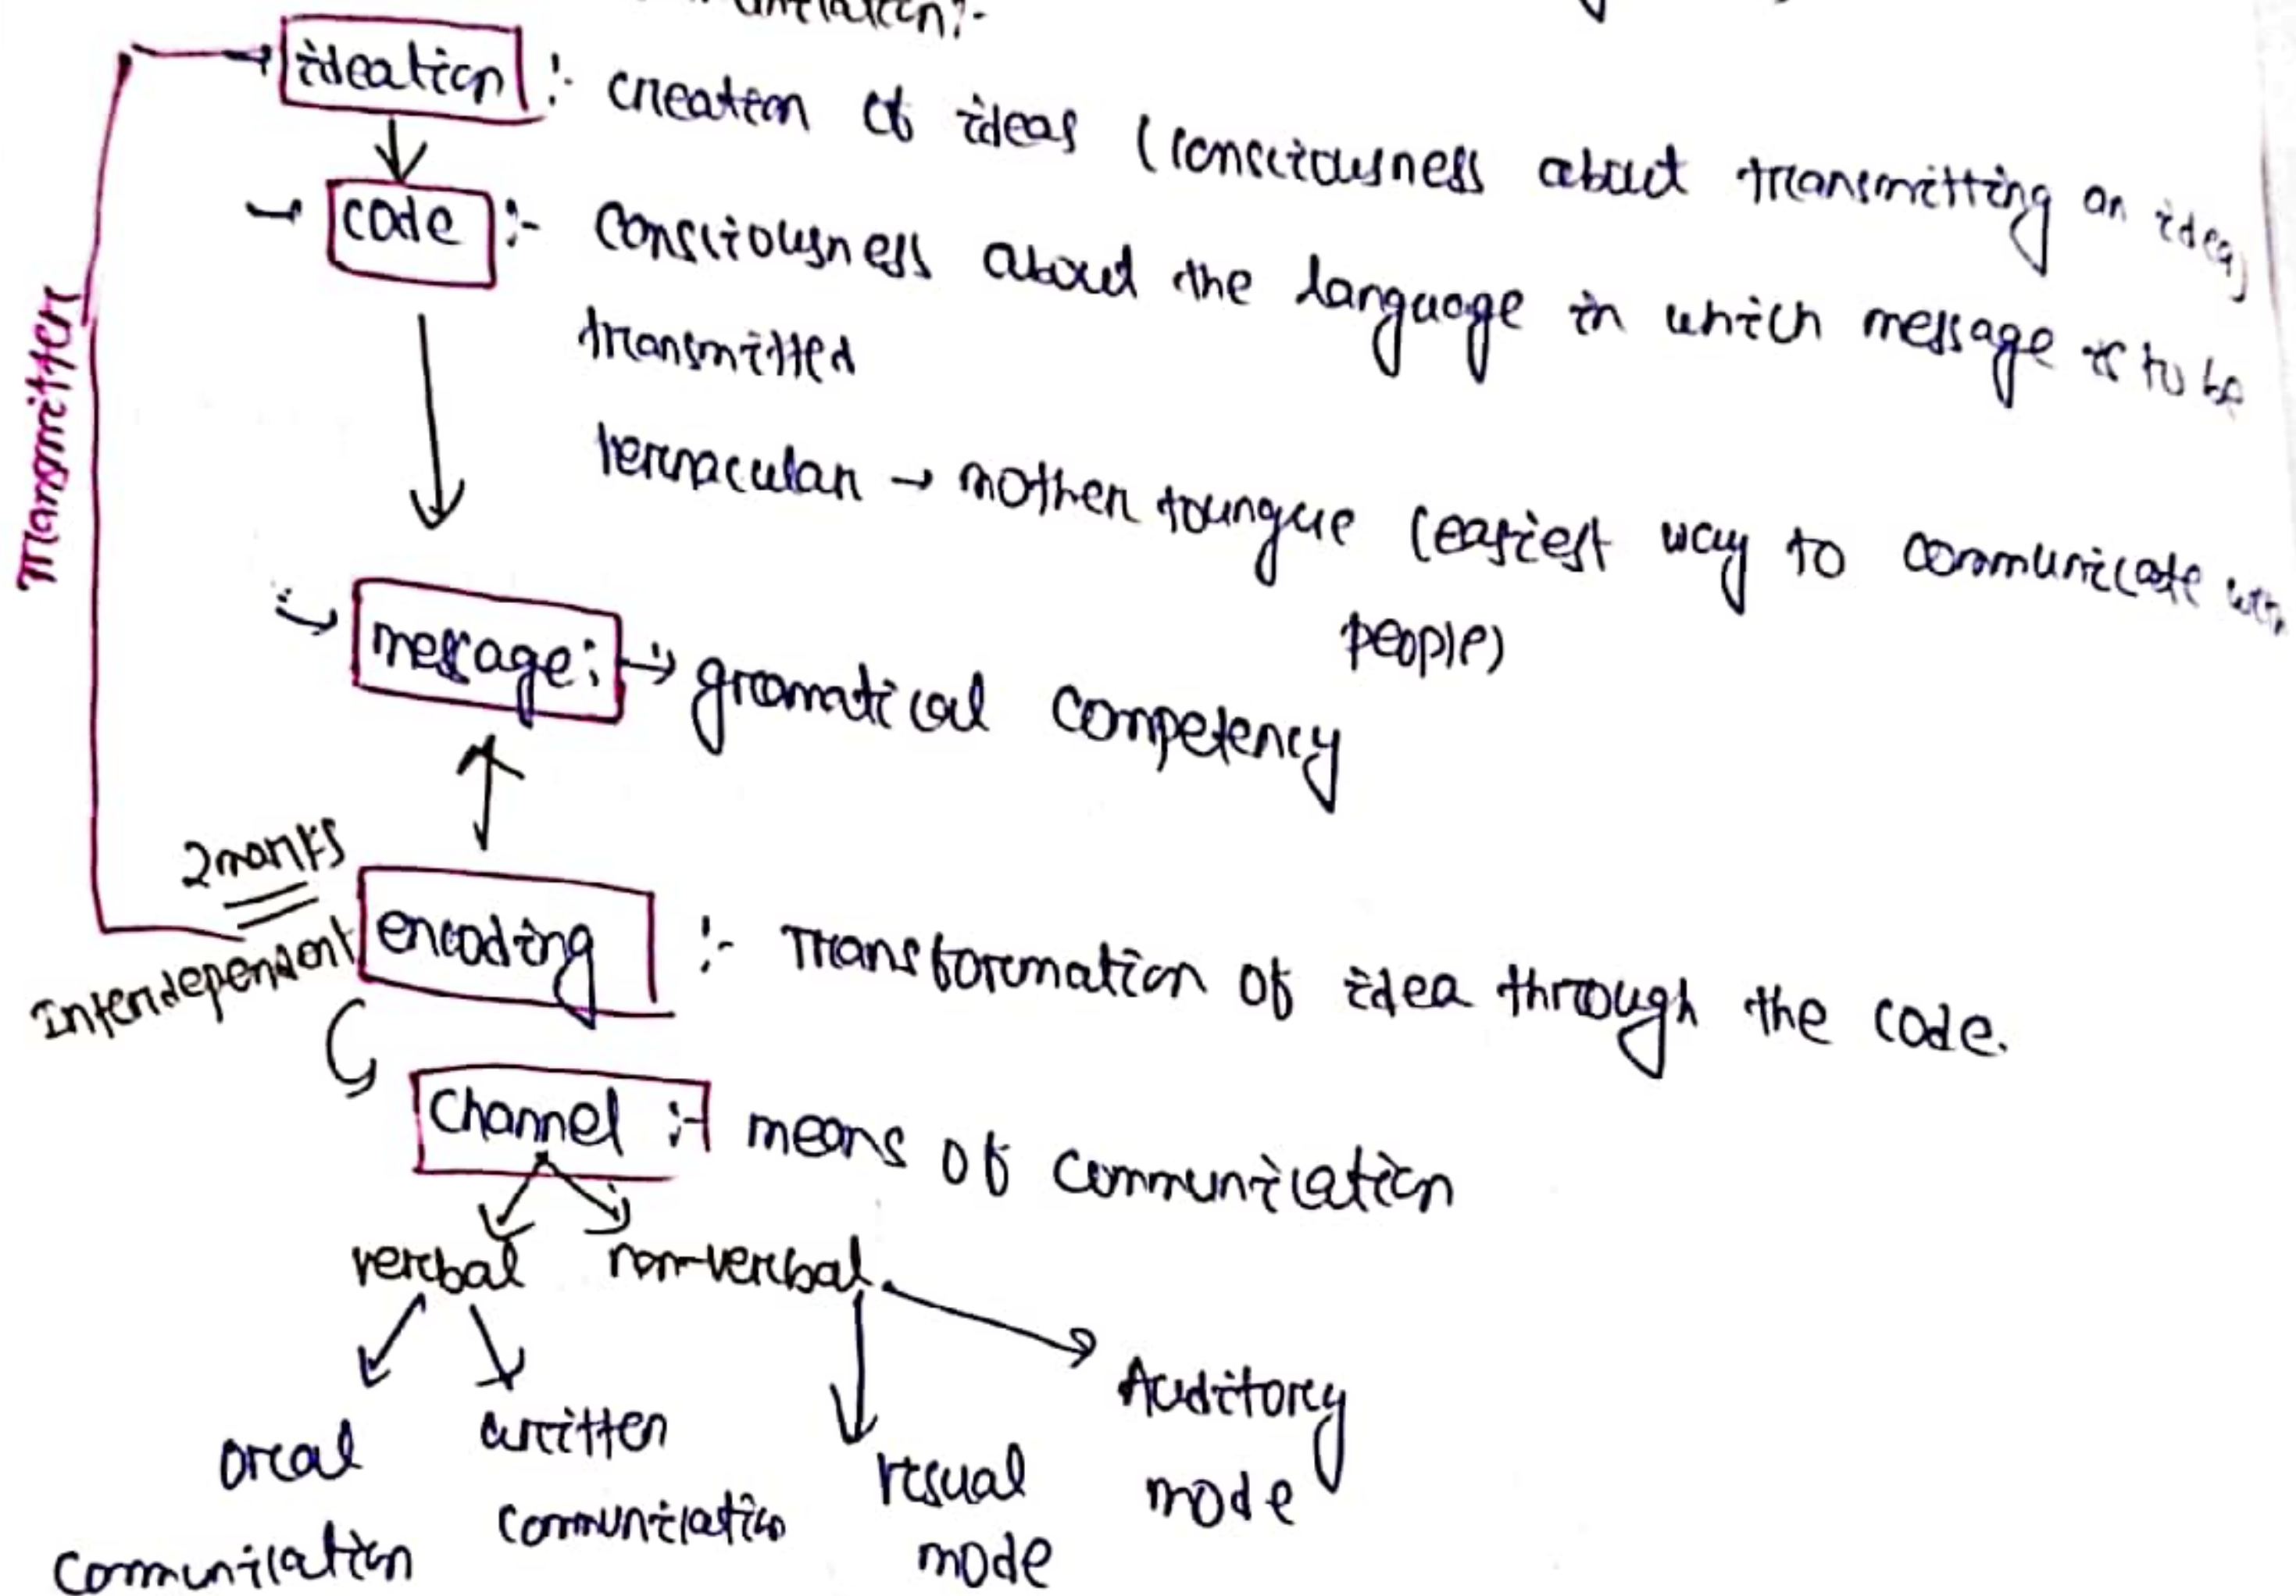 ideation :- creation of ideas (consciousness about transmitting an idea)
code :- Consciousness about the language in which message is to be
transmitted
vernacular → mother toungue (easiest way to communicate with
people)
Transmitter
message: → gramatical competency
2 marks
Interdependent
encoding :- Transformation of idea through the code.
Channel :- means of communication
verbal non-verbal
oral written visual Auditory
communication communication mode mode